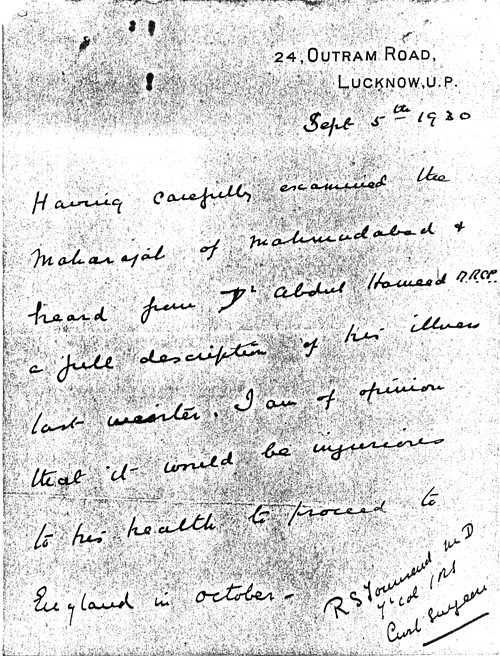 24, OUTRAM ROAD,
LUCKNOW, U.P.
Sept 5th 1930
Having carefully examined the
Maharajah of Mahmudabad &
heard from Dr Abdul Hameed M.R.C.P.
a full description of his illness
last winter, I am of opinion
that it would be injurious
to his health to proceed to
England in October -
R S Townsend M D
Lt Col IMS
Civil Surgeon